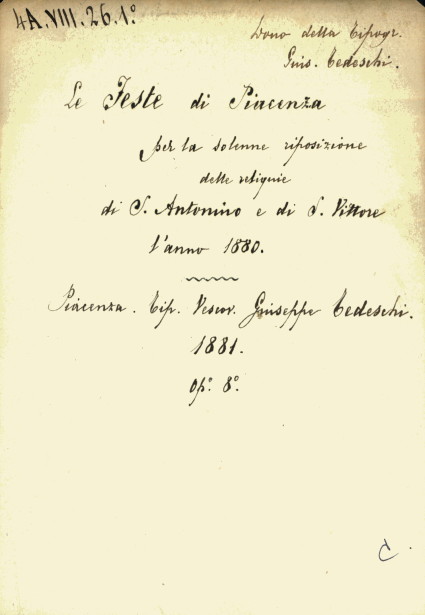 4A.VIII.26.1º
Dono della Tipogr.
Gius. Tedeschi.
Le Feste di Piacenza
per la solenne riposizione
delle reliquie
di S. Antonino e di S. Vittore
l'anno 1880.
Piacenza. Tip. Vescov. Giuseppe Tedeschi.
1881.
opº. 8º.
C.